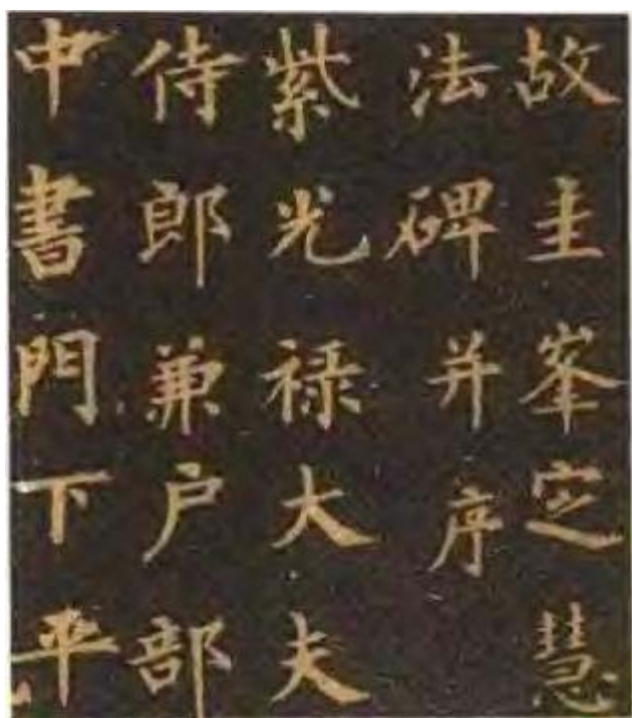 故圭峯㝎慧
法碑并序
紫光禄大夫
侍郎兼户部
中書門下平